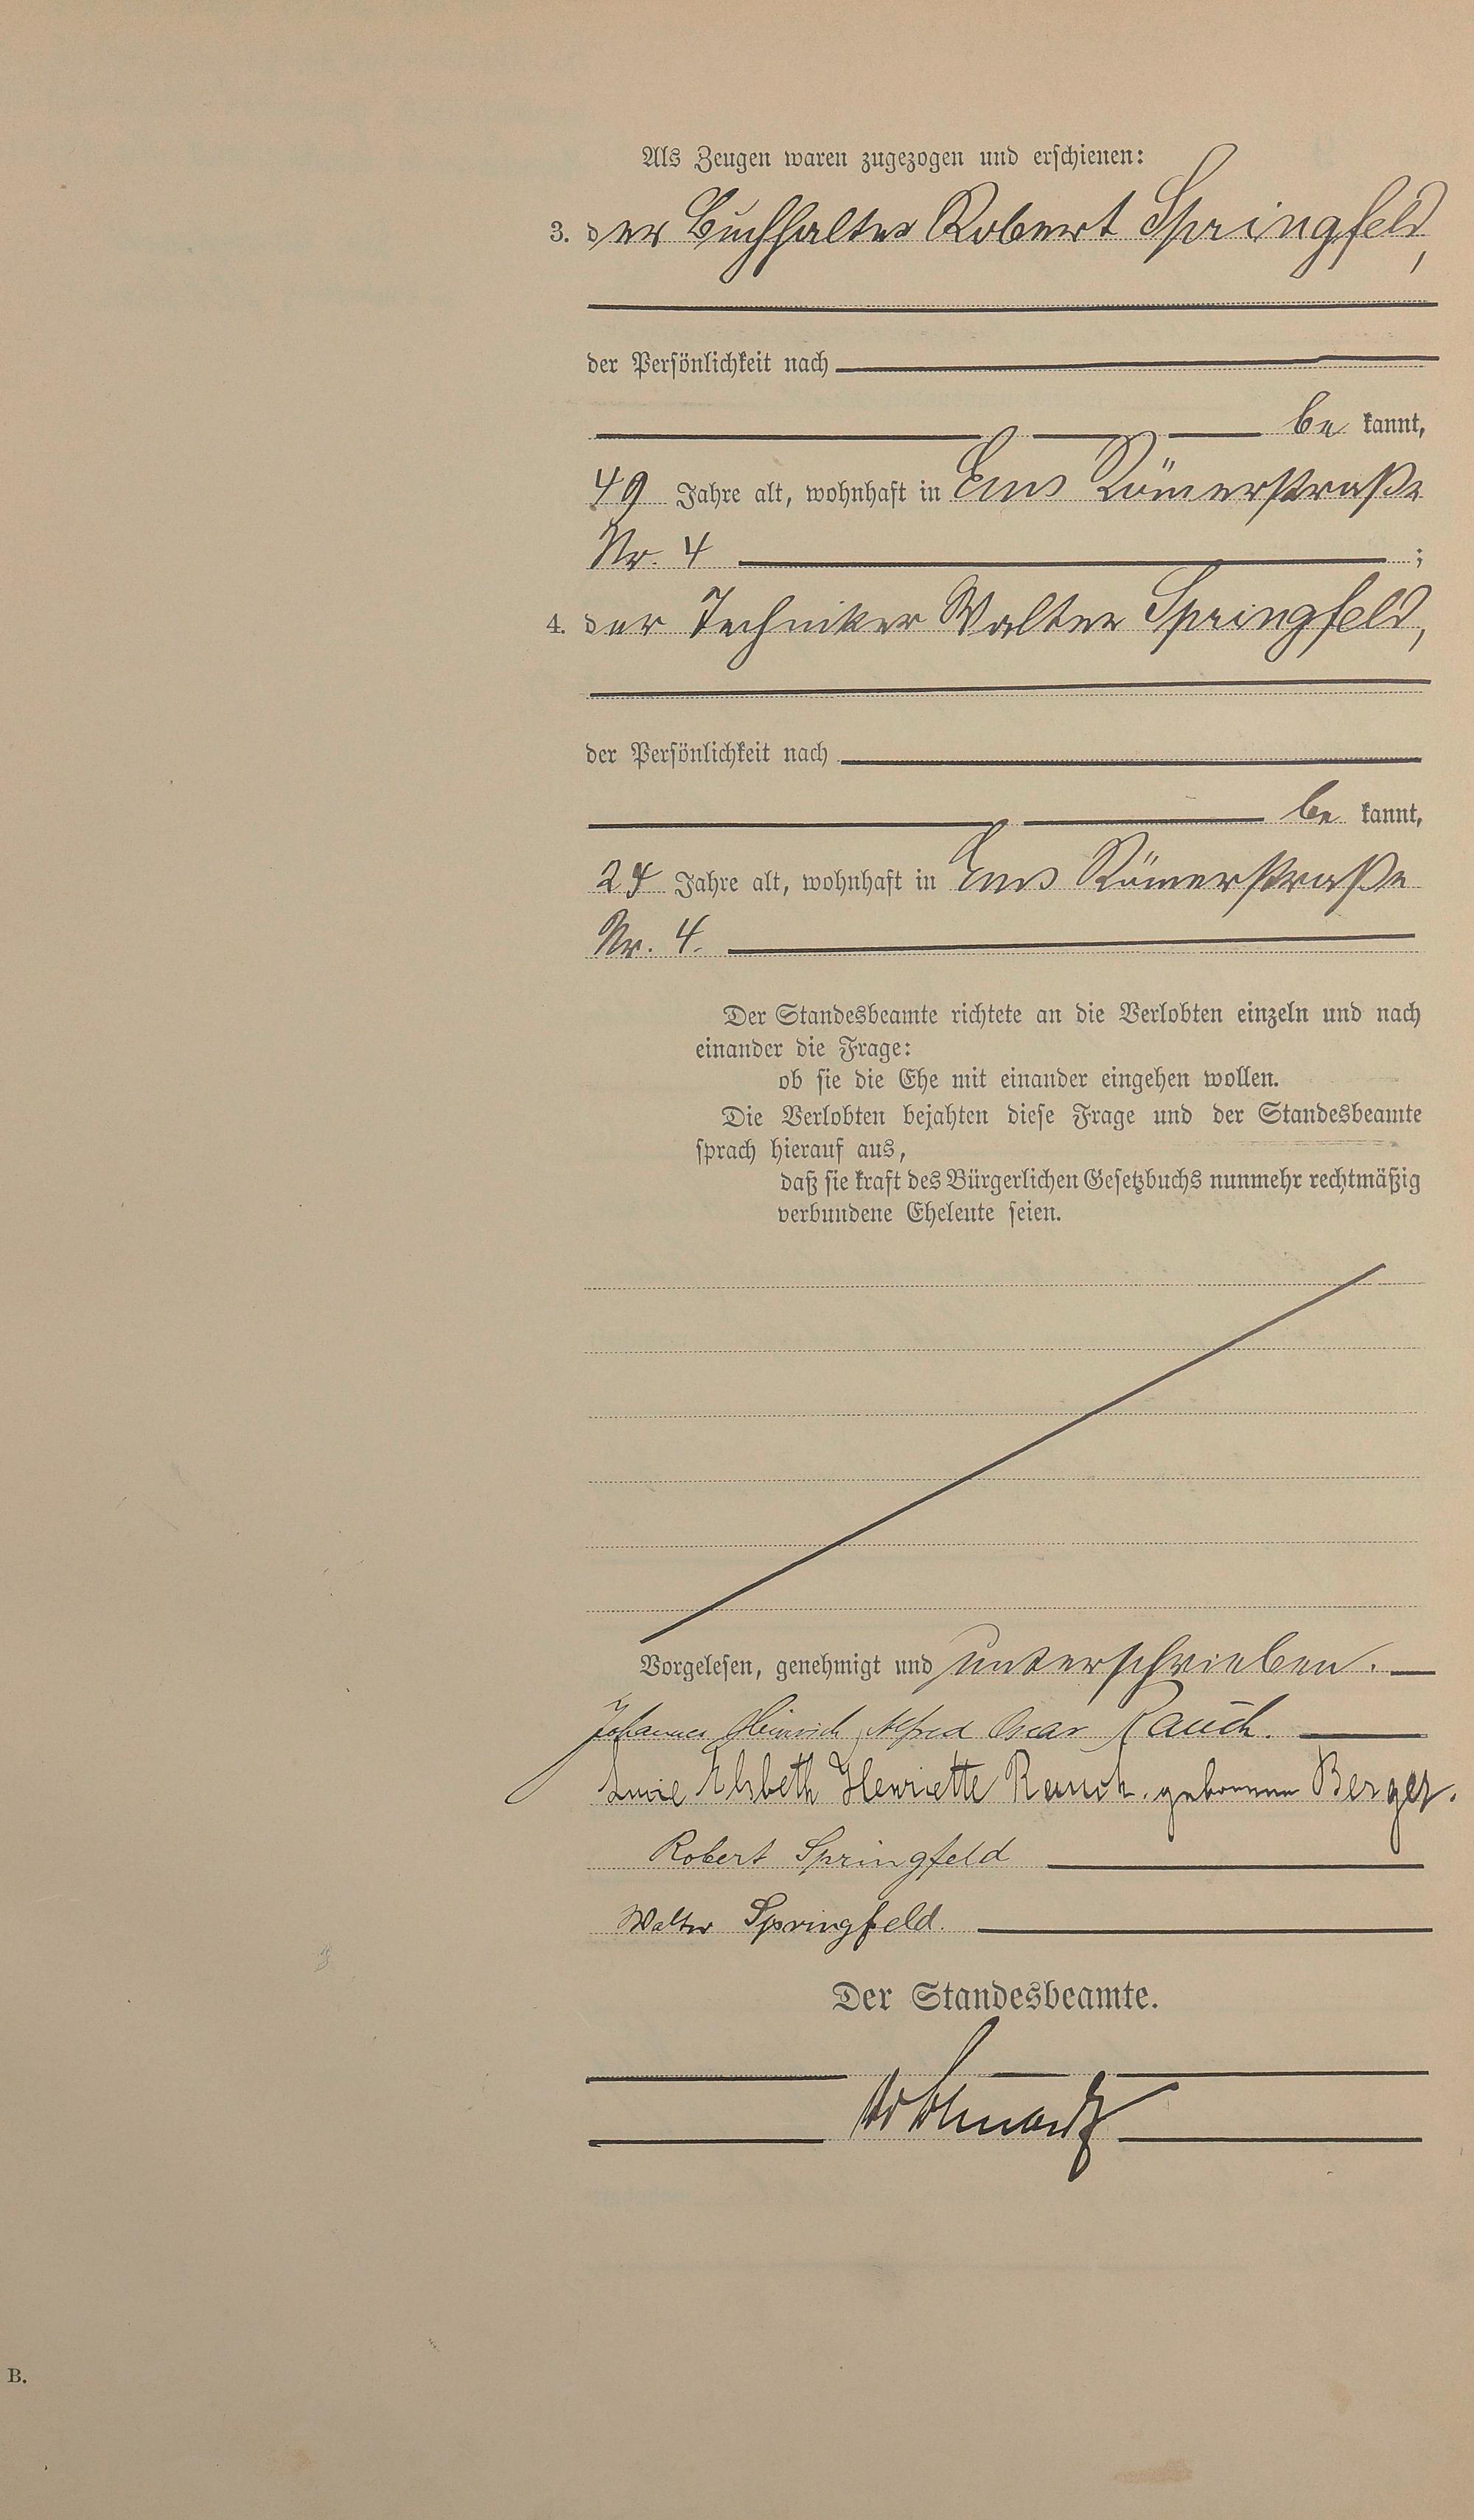 Als Zeugen waren zugezogen und erschienen:
3. der Buchhalter Robert Springfeld,
der Persönlichkeit nach
be kannt,
49 Jahre alt, wohnhaft in Ems Römerstraße
Nr. 4 ;
4. der Techniker Walter Springfeld,
der Persönlichkeit nach
be kannt,
24 Jahre alt, wohnhaft in Ems Römerstraße
Nr. 4.
Der Standesbeamte richtete an die Verlobten einzeln und nach
einander die Frage:
ob sie die Ehe mit einander eingehen wollen.
Die Verlobten bejahten diese Frage und der Standesbeamte
sprach hierauf aus,
daß sie kraft des Bürgerlichen Gesetzbuchs nunmehr rechtmäßig
verbundene Eheleute seien.
Vorgelesen, genehmigt und unterschrieben.
Johannes Heinrich Alfred Oscar Rauch.
Elsbeth Henriette Rauch. geborene Berger.
Robert Springfeld
Walter Springfeld.
Der Standesbeamte.
B.